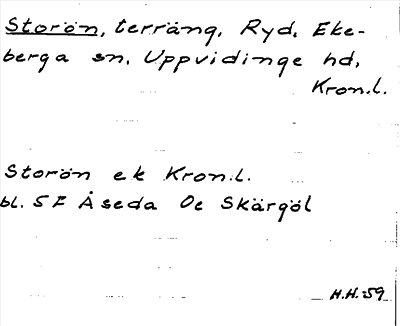 Storön, terräng, Ryd, Eke-
berga sn, Uppvidinge hd,
Kron.l.
Storön ek Kron.l.
bl. 5F Åseda Oe Skärgöl
H.H.-59